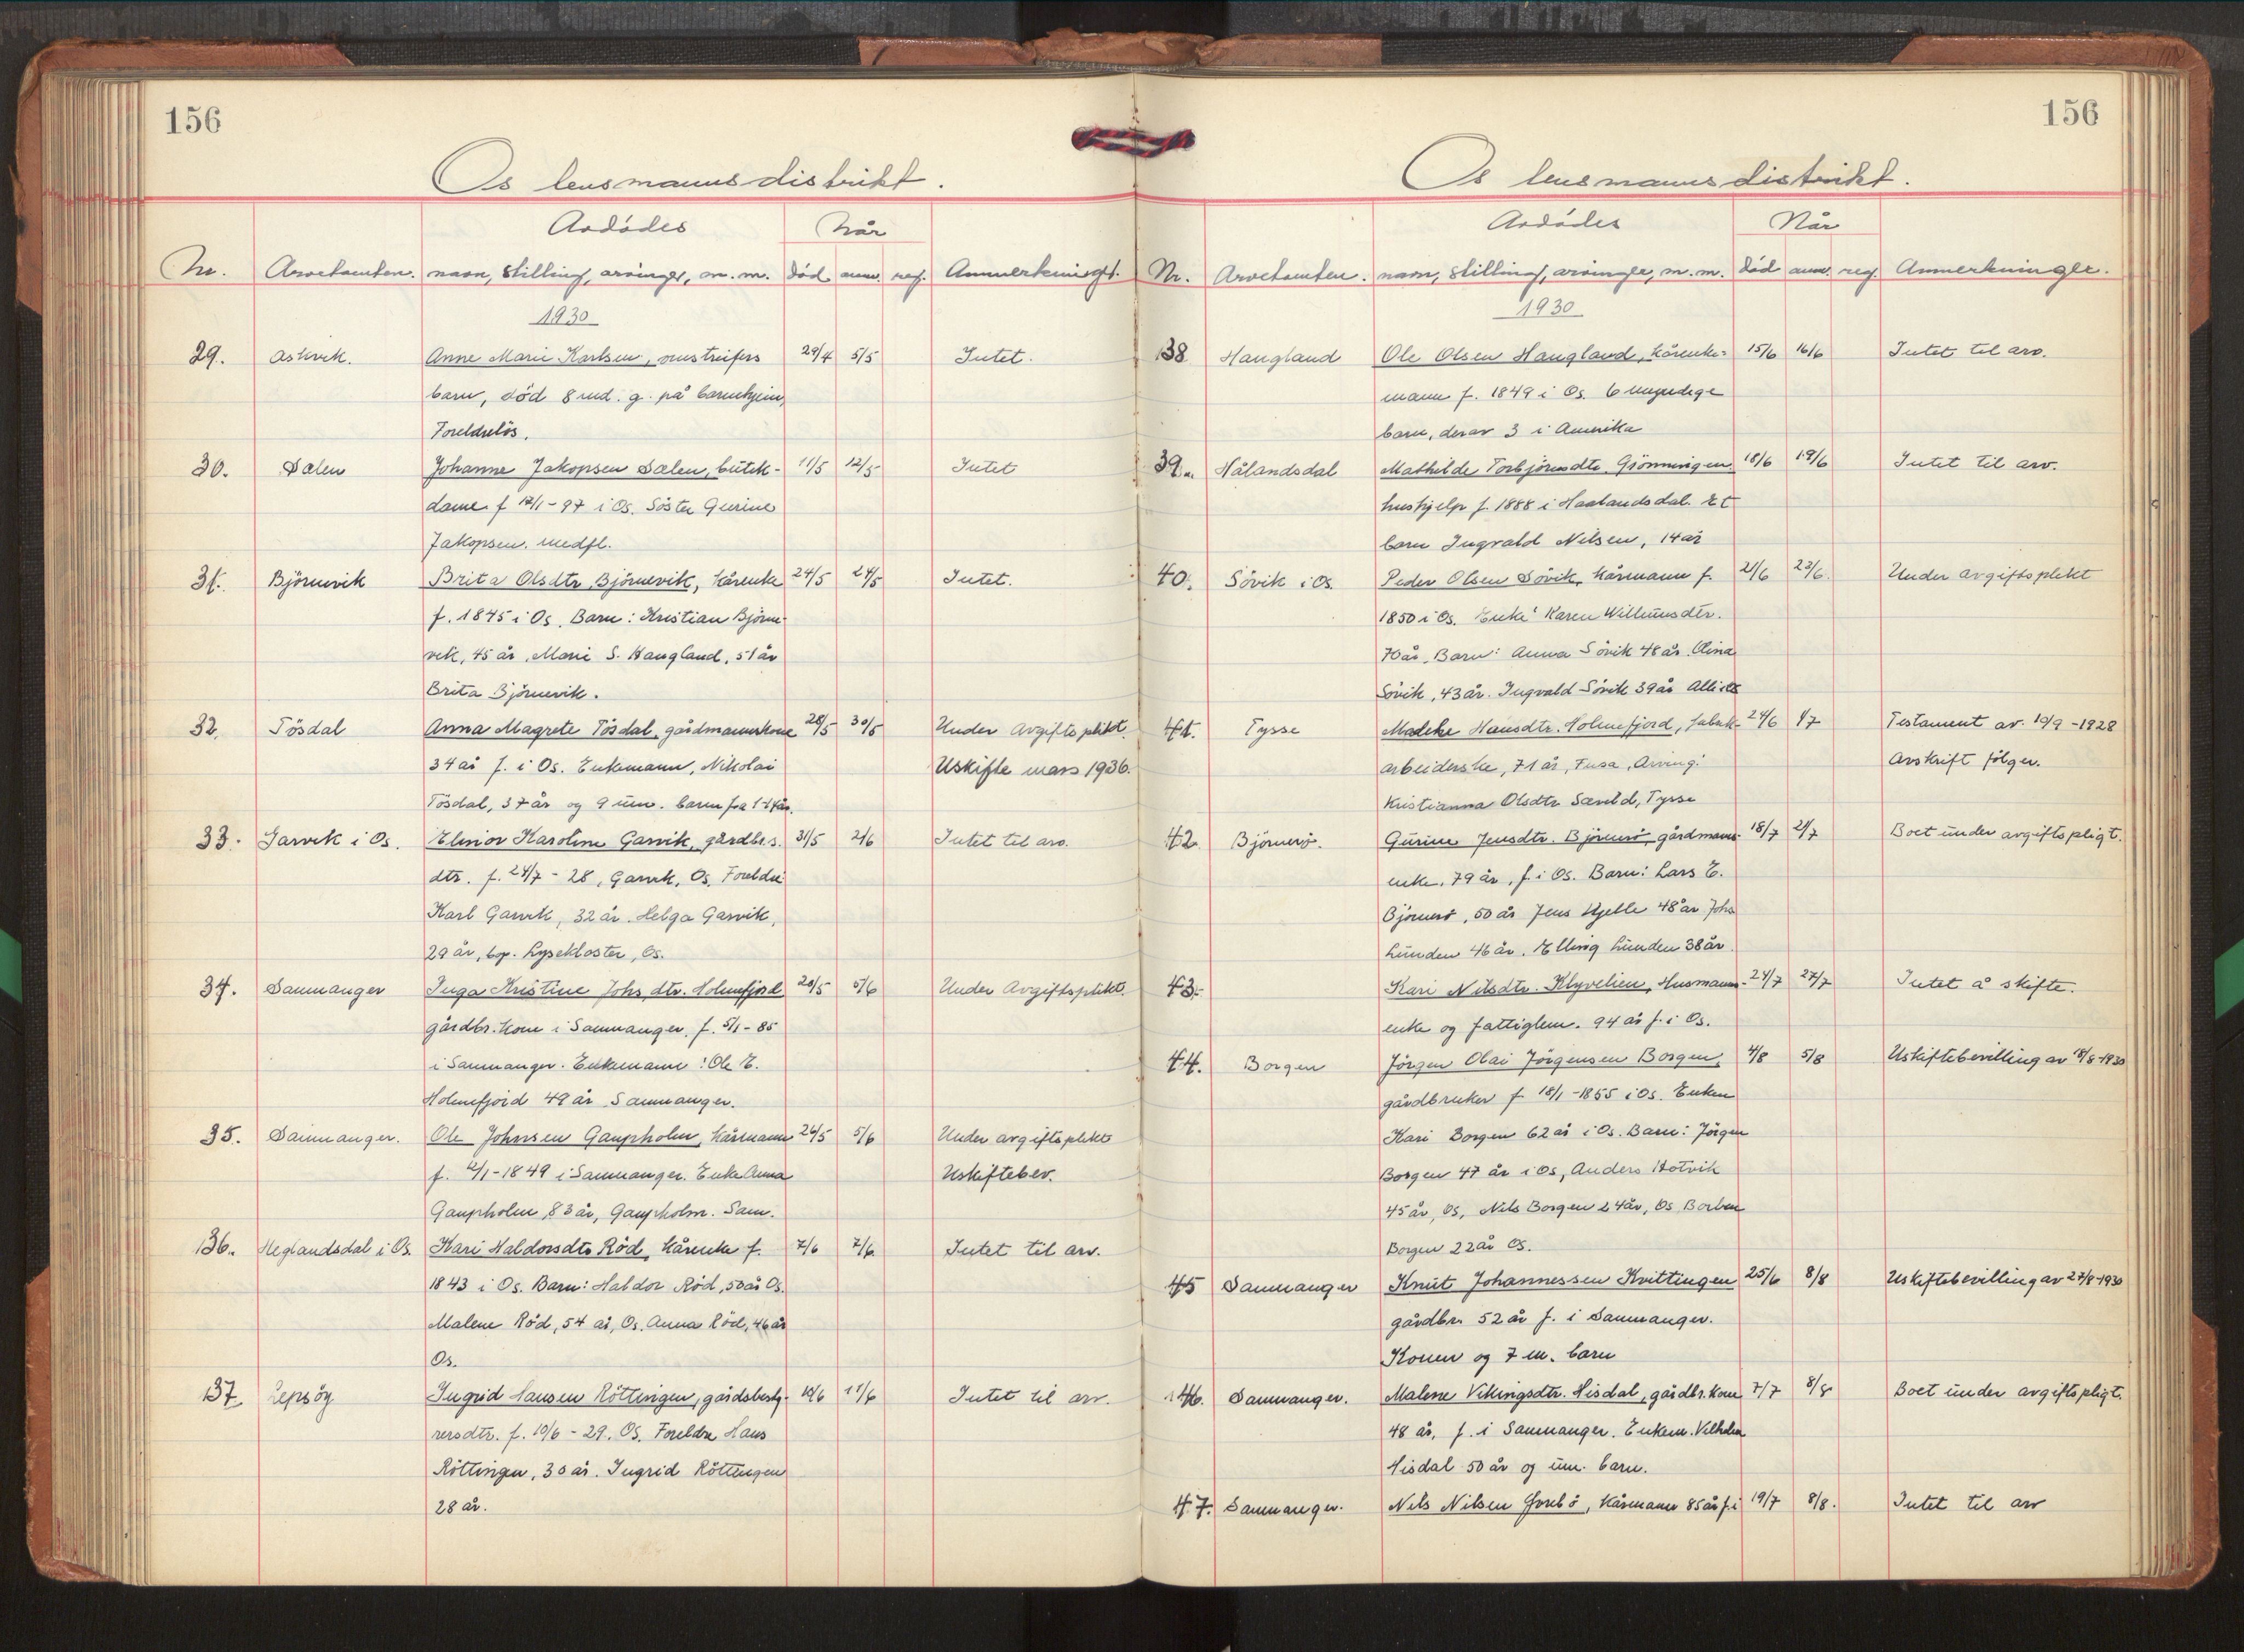 156
Os lensmannsdistrikt.
Avdödes
Når
Nr. Arvetomten. navn, stilling, arvinger, m. m. död anm. reg. Anmerkninger.
1930
29. Askvik. Anne Marie Karlsen, omstreifers 29/4 5/5 Intet.
barn, död 8 md. g. på barnehjem,
Foreldrelös.
30. Dalen Johanne Jakopsen Dalen, butik- 11/5 12/5 Intet
dame f 12/1-97 i Os. Söster Gurine
Jakopsen. medfl.
31. Björnevik Brita Olsdtr. Björnevik, kårenke 24/5 24/5 Intet.
f. 1845 i Os. Barn: Kristian Björne-
vik, 45 år, Marie S. Haugland, 51 år
Brita Björnevik.
32. Tösdal Anna Magrete Tösdal, gårdmannskone 28/5 30/5 Under avgiftsplikt.
34 år f. i Os. Enkemann, Nikolai Uskifte mars 1936.
Tösdal, 37 år og 9 um. barn fra 1-14 år.
33. Garvik i Os. Elinor Karoline Garvik, gårdbr.s. 31/5 2/6 Intet til arv.
dtr. f. 24/7 - 28, Garvik, Os, Foreldre
Karl Garvik, 32 år. Helga Garvik,
29 år, bop. Lysekloster, Os.
34. Samnanger Inga Kristine Johs. dtr. Holmefjord 20/5 5/6 Under avgiftsplikt.
gårdbr. kone i Samnanger, f. 5/1-85
i Samnanger. Enkemann: Ole E.
Holmefjord 49 år Samnanger.
35. Samnanger. Ole Johnsen Gaupholm, kårmann 26/5 5/6 Under avgiftsplikt
f. 12/1-1849 i Samnanger. Enke Anna Uskiftebev.
Gaupholm, 83 år, Gaupholm. Sam.
136. Heglandsdal i Os. Kari Haldorsdtr Röd, kårenke f. 7/6 7/6 Intet til arv.
1843 i Os. Barn: Haldor Röd, 50 år Os.
Malene Röd, 54 år, Os. Anna Röd, 46 år
Os.
137 Lepsöy Ingrid Hansen Röttingen, gårdsbesty- 10/6 11/6 Intet til arv.
rersdtr. f. 10/6 - 29. Os. Foreldre Hans
Röttingen, 30 år. Ingrid Röttingen
28 år.
156
Os lensmannsdistrikt.
Avdödes
Når
Nr. Arvetomten. navn, stilling, arvinger, m. m. död anm. reg. Anmerkninger.
1930
138 Haugland Ole Olsen Haugland, kårenke- 15/6 16/6 Intet til arv.
mann f. 1849 i Os. 6 myndige
barn, derav 3 i Amerika
39. Hålandsdal Mathilde Torbjörnsdtr. Grönningen 18/6 19/6 Intet til arv.
hushjelp f. 1888 i Haalandsdal. Et
barn Ingvald Nilsen, 14 år
40. Sövik i Os. Peder Olsen Sövik, kårmann f. 21/6 23/6. Under avgiftsplikt
1850 i Os. Enke: Karen Willumsdtr.
70 år, Barn: Anna Sövik 48 år. Olina
Sövik, 43 år. Ingvald Sövik 39 år Alle i Os
41. Tysse Madele Hansdtr. Holmefjord, fabrik- 24/6 1/7 Testament av 19/9-1928
arbeiderske, 71 år, Fusa, Arving: Avskrift fölger.
Kristianna Olsdtr. Tysse
42. Björnerö. Gurine Jensdtr. Björnerö gårdmanns- 18/7 21/7 Boet under avgiftspligt.
enke, 79 år, f. i Os. Barn: Lars E.
Björnerö, 50 år Jens Hjelle 48 år Johs
Lunden 46 år. Elling Lunden 38 år.
43. Kari Nilsdtr. Klyvelien, Husmanns- 24/7 27/7 Intet å skifte.
enke og fattiglem. 94 år f. i Os.
44. Borgen Jörgen Olai Jörgensen Borgen, 4/8 5/8 Uskiftebevilling av 18/8-1930
gårdbruker f 18/1-1855 i Os. Enken
Kari Borgen 62 år i Os. Barn: Jörgen
Borgen 47 år i Os, Anders Hotvik
45 år, Os, Nils Borgen 24 år, Os
Borgen 22 år Os.
45 Samnanger Knut Johannessen Kvittingen 25/6 8/8 Uskiftebevilling av 27/8-1930
gårdbr. 52 år f. i Samnanger.
Konen og 7 m. barn
146. Samnanger. Malene Vikingsdtr. Hisdal, gårdbr. kone 7/7 8/8 Boet under avgiftspligt.
48 år, f. i Samnanger. Enkem. Vilhelm
Hisdal 50 år og um. barn.
47. Samnanger. Nils Nilsen, kårmann 85 år f. i 19/7 8/8. Intet til arv